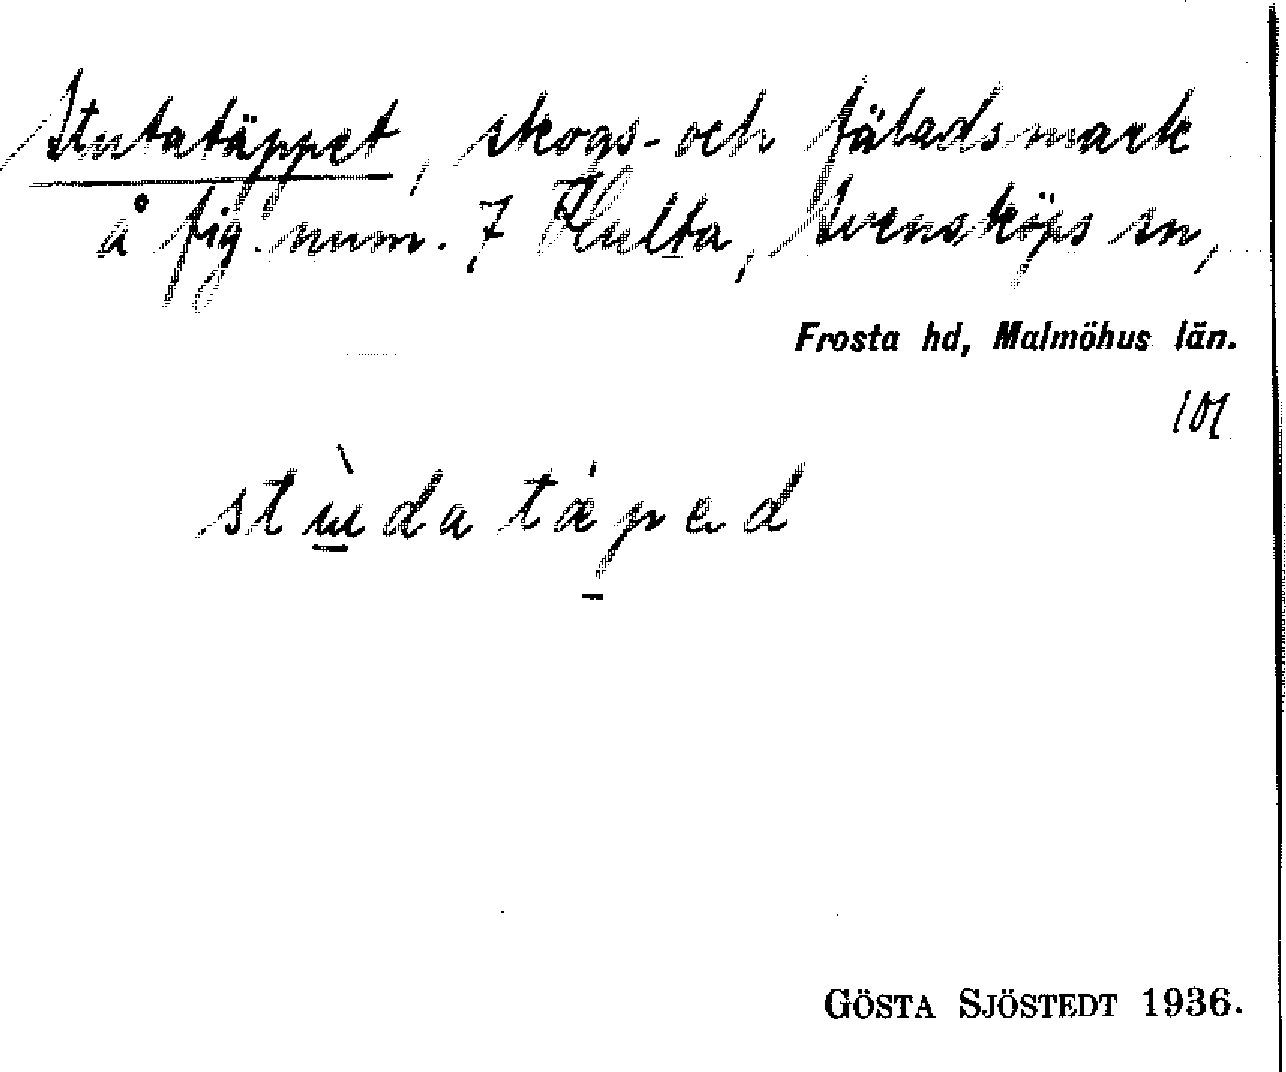 Stutatäppet, skogs- och fäladsmark
å fig. num. 7 Hulta, Svensköps sn,
Frosta hd, Malmöhus län.
stùda täped
GÖSTA SJÖSTEDT 1936.